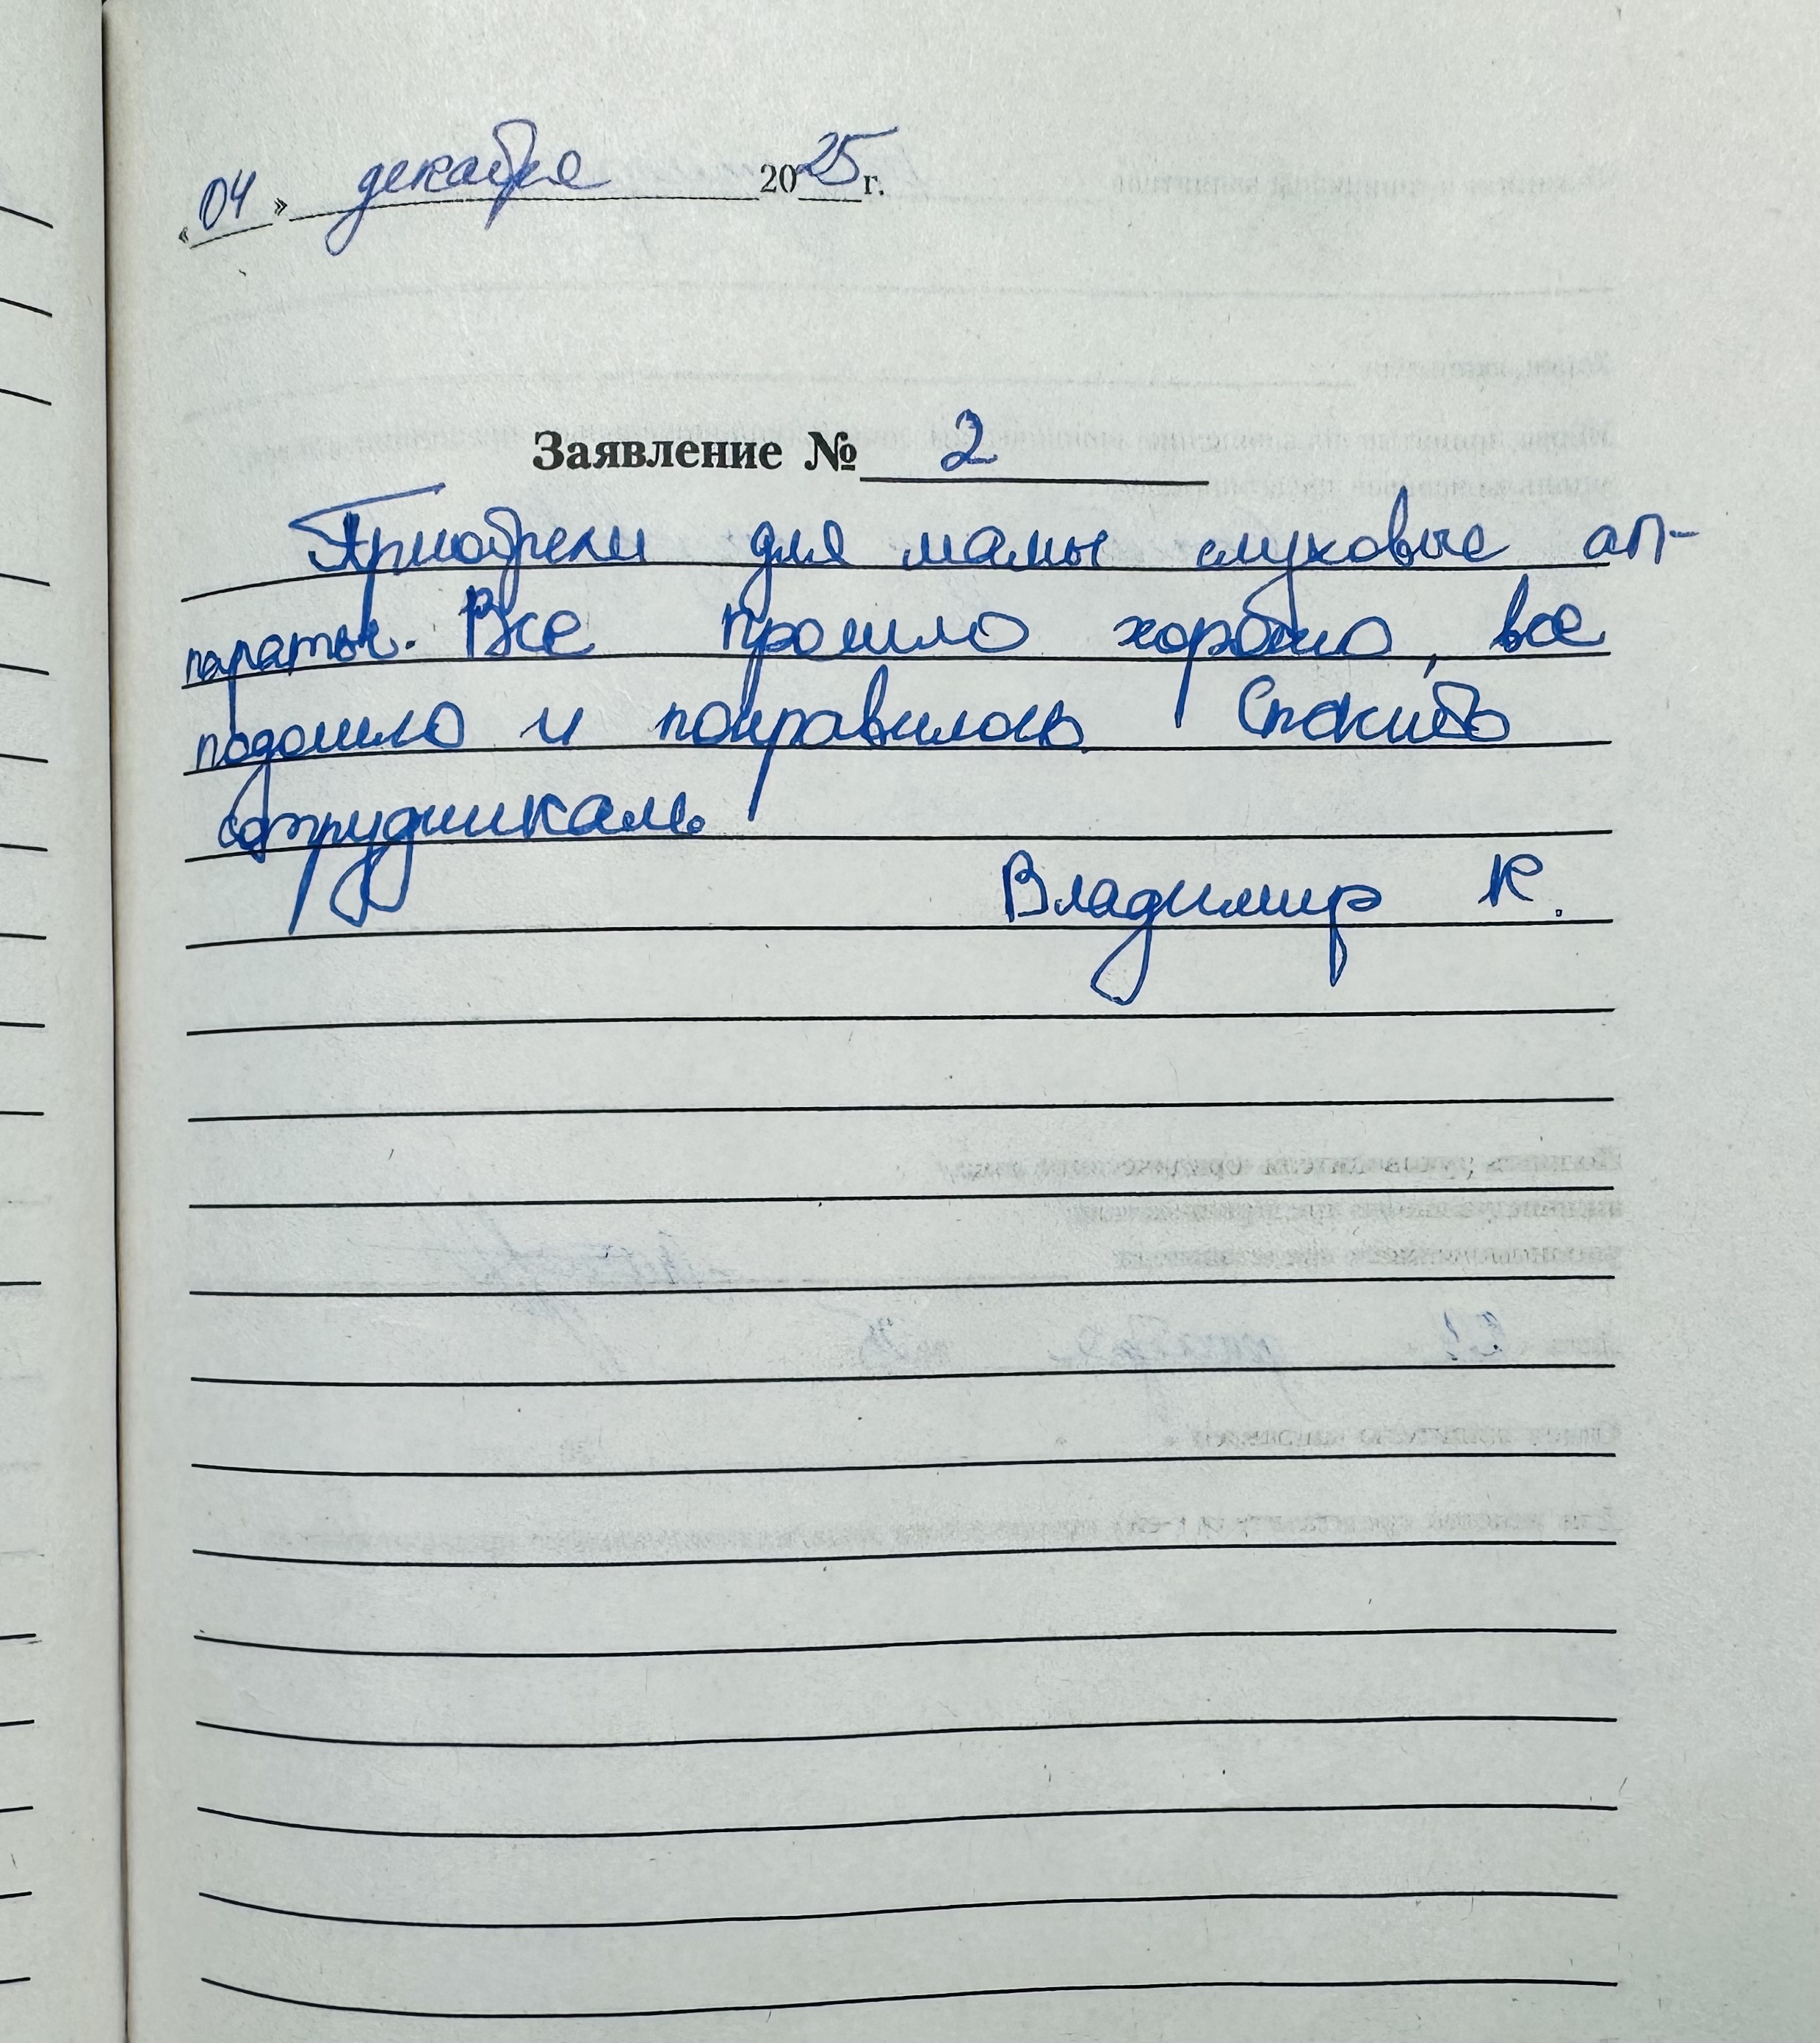 «04» декабря 2025 г.
Заявление № 2
Приобрели для мамы слуховые ап-
параты. Все прошло хорошо, все
подошло и понравилось. Спасибо
сотрудникам.
Владимир К.